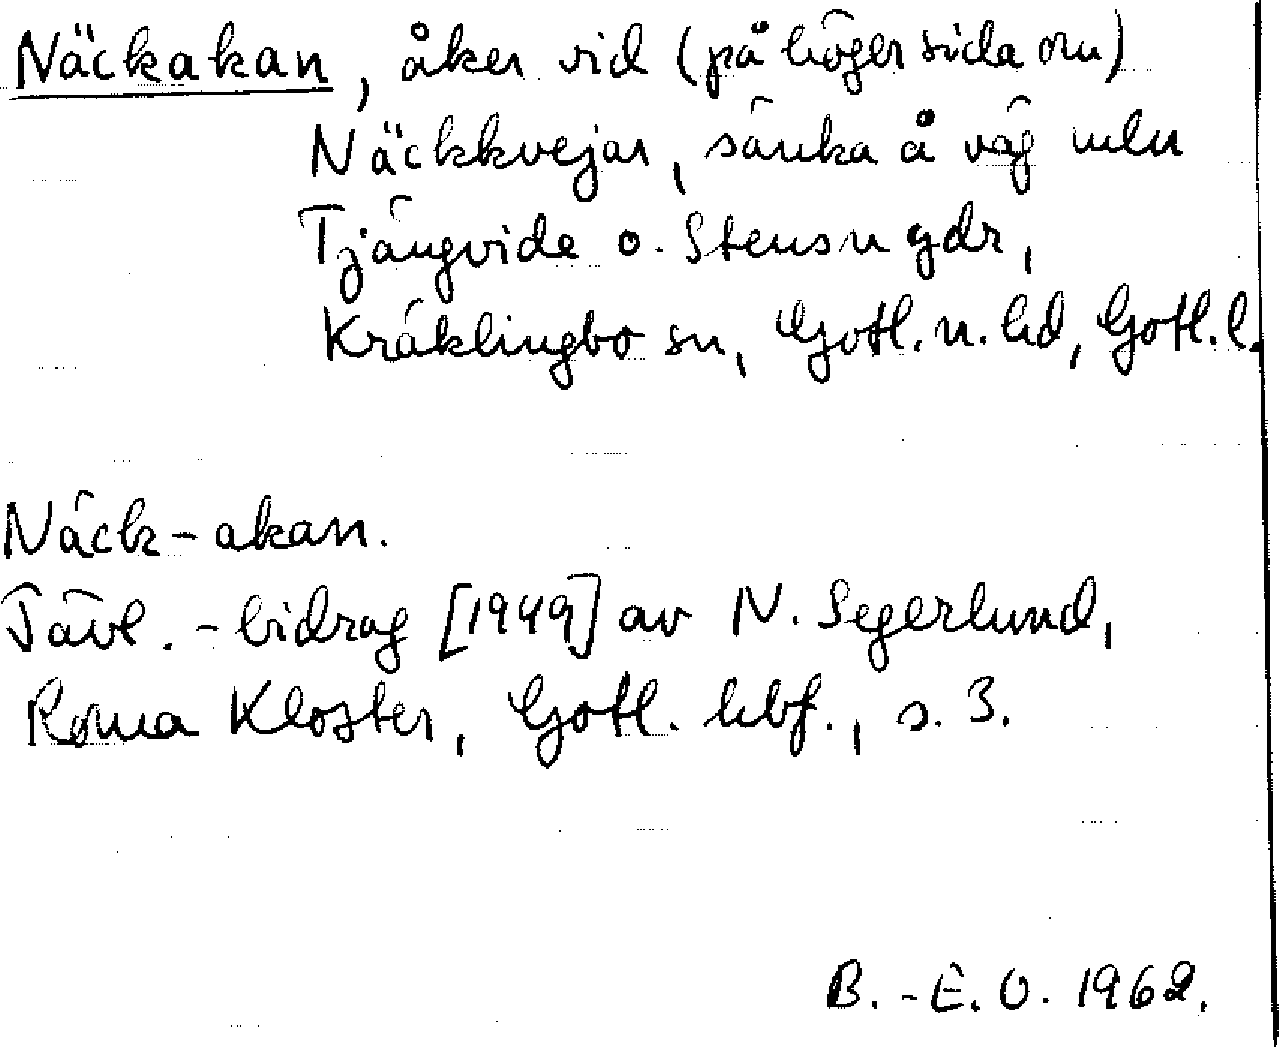 Näckakan, åker vid (på höger sida om)
Näckkvejar, sänka å väg mln
Tjängvide o. Stensn gdr,
Kräklingbo sn, Gotl. n. hd, Gotl. l.
Näck-akan.
Tävl.-bidrag [1949] av N. Segerlund,
Roma Kloster, Gotl. hbf., s. 3.
B.-E. O. 1962.